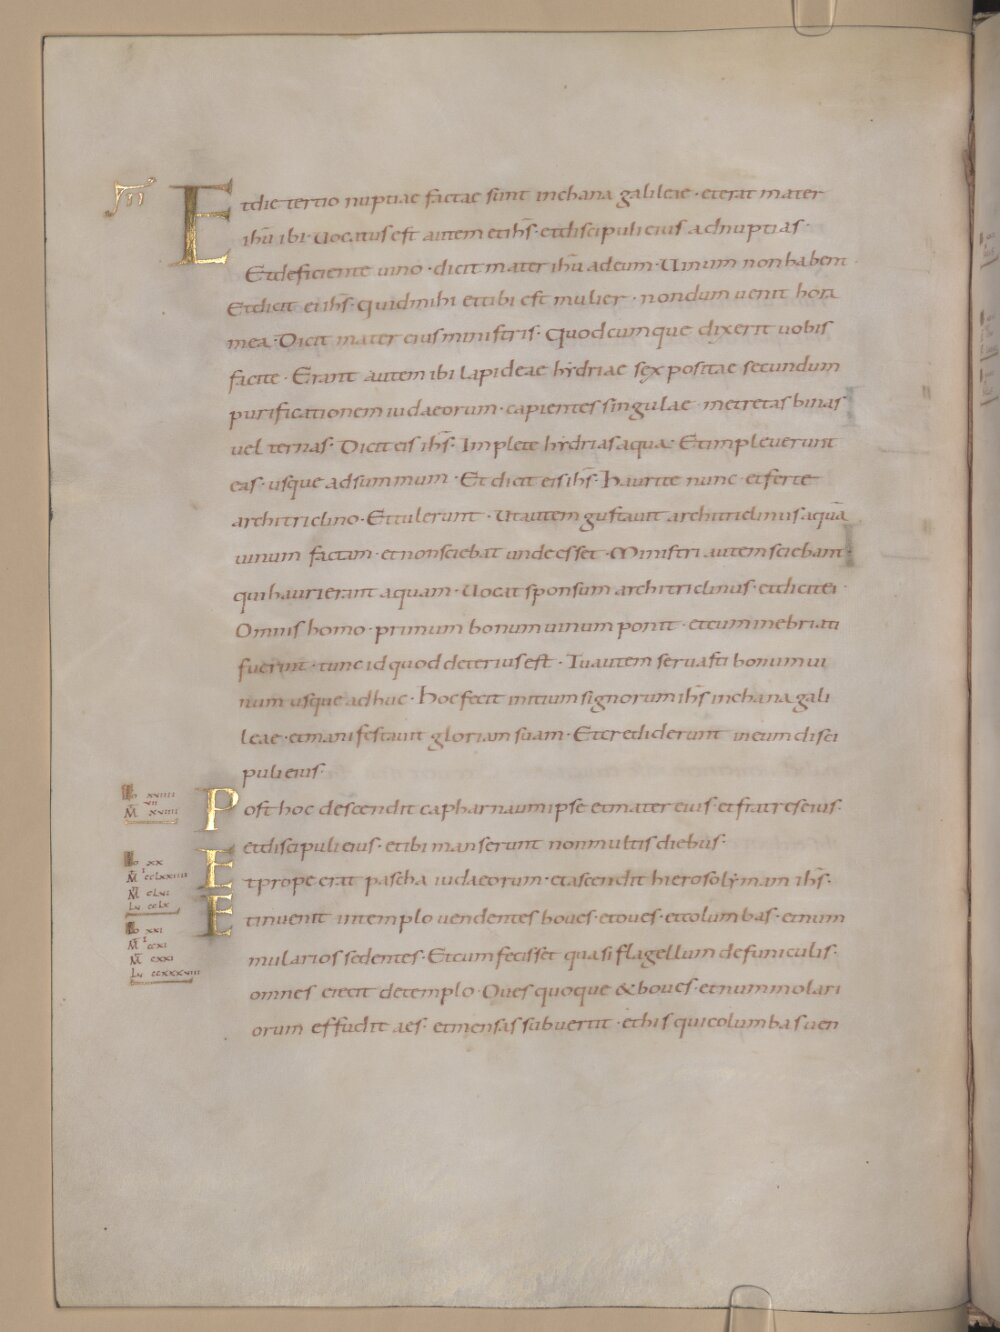 Et die tertio nuptiae factae sunt inchana galileae · et erat mater
ihu ibi · Uocatus est autem et ihs · et discipuli eius ad nuptias ·
Et deficiente uino · dicit mater ihu ad eum · Uinum non habent ·
Et dicit ei ihs · quid mihi et tibi est mulier · nondum uenit hora
mea · Dicit mater eius ministris · Quodcumque dixerit uobis
facite · Erant autem ibi lapideae hydriae sex positae secundum
purificationem iudaeorum · capientes singulae metretas binas
uel ternas · Dicit eis ihs · Implete hydrias aqua · Et impleuerunt
eas · usque ad summum · Et dicit eis ihs · haurite nunc et ferte
architriclino · Et tulerunt · Ut autem gustauit architriclinus aquā
uinum factam · et non sciebat unde esset · Ministri autem sciebant ·
qui haurierant aquam · Uocat sponsum architriclinus · et dicit ei ·
Omnis homo · primum bonum uinum ponit · et cum inebriati
fuerint · tunc id quod deterius est · Tu autem seruasti bonum ui
num usque adhuc · hoc fecit initium signorum ihs inchana gali
leae · et manifestauit gloriam suam · Et crediderunt in eum disci
puli eius ·
Io xxiiii
vii
M xxviiii
Post hoc descendit capharnaum ipse et mater eius · et fratres eius ·
et discipuli eius · et ibi manserunt non multis diebus ·
Io xx
M cclxxiiii
M clvi
Lu cclx
Et prope erat pascha iudaeorum · et ascendit hierosolymam ihs ·
Io xxi
M ccxi
M cxxi
Lu ccxxxviii
Et inuenit in templo uendentes boues · et oues · et columbas · et num
mularios sedentes · Et cum fecisset quasi flagellum de funiculis ·
omnes eiecit de templo · Oues quoque & boues · et nummulari
orum effudit aes · et mensas subuertit · et his qui columbas uen